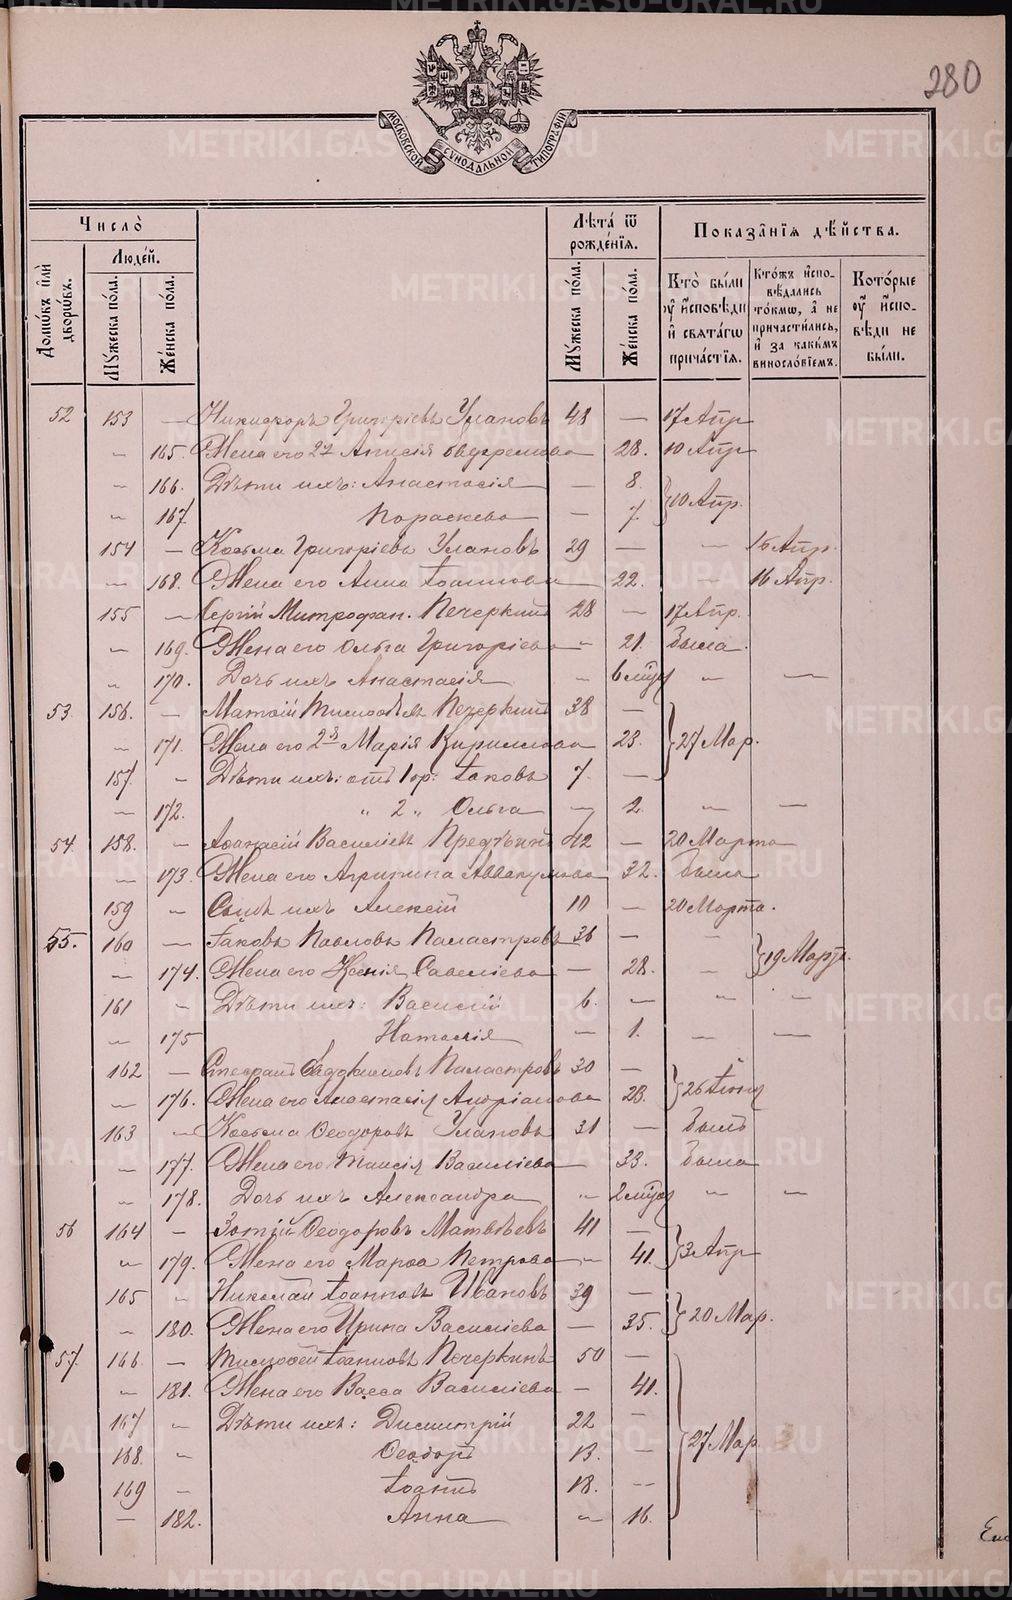 280
МОСКОВСКОЙ СѴНОДАЛЬНОЙ ТИПОГРАФІИ
Число̀
Лѣта́ ѿ рожде́нїѧ.
Показа̑нїѧ дѣ́йства.
Домѡ́въ и҆лѝ дворѡ́въ.
Люде́й.
Мꙋ́жеска по́ла.
Же́нска по́ла.
Мꙋ́жеска по́ла.
Же́нска по́ла.
Кто̀ бы́ли ᲂу҆ и҆́сповѣди и҆ свѧта́гѡ прича́стїѧ.
Кто́жъ и҆спо-вѣ́дались то́кмѡ, а҆ не причасти́лись, и҆ за каки́мъ виносло́вїемъ.
Кото́рые ᲂу҆ и҆́спо-вѣди не бы́ли.
52 153 — Никифоръ Григоріевъ Улановъ 48 — 17 Апр
„ 165. Жена его 2я Анисія 28. 10 Апр
„ 166. Дѣти ихъ: Анастасія — 8. } 10 Апр.
„ 167. Параскева — 7.
154 — Косьма Григоріевъ Улановъ 29 — — 16 Апр.
„ 168. Жена его Анна Іоаннова 22. „ 16 Апр.
155 — Сергій Митрофан. Печеркинъ 28 — 17 Апр.
„ 169. Жена его Ольга Григоріева „ 21. Была
„ 170. Дочь ихъ Анастасія „ 6 мѣс „ —
53. 156. — Матѳій Тимоѳѣевъ Печеркинъ 38 — } 27 Мар.
„ 171. Жена его 2я Марія Кириллова 23.
157. „ Дѣти ихъ: отъ 1 бр: Іаковъ 7. —
— 172. „ 2 „ Ольга — 2. „ —
54. 158. „ Аѳанасій Василіевъ 42 — 20 Марта
„ 173. Жена его Агрипина Аввакумова 32. Была
159 „ Сынъ ихъ Алексій 10 — 20 Марта.
55. 160 — Іаковъ Павловъ Паластровъ 36 — „ } 19 Марта.
„ 174. Жена его Ксенія Савеліева — 28. „
161 „ Дѣти ихъ: Василій 6. „ „ —
„ 175 Наталія „ 1. „ —
162 — Стефанъ Паластровъ 30 — } 26 Іюня
„ 176. Жена его Анастасія Андріанова 23.
163 „ Косьма Ѳеодоровъ Улановъ 31 — Былъ
„ 177. Жена его Таисія Василіева 33. Была
„ 178. Дочь ихъ Александра „ 2 мѣс „ —
56 164 — Зотій Ѳеодоровъ Матвѣевъ 41 — } 3 Апр
„ 179. Жена его Марѳа Петрова „ 41.
165 „ Николай Іоанновъ Ивановъ 39 — } 20 Мар.
„ 180. Жена его Ирина Василіева — 35.
57. 166. — Тимоѳей Іоанновъ Печеркинъ 50 — } 27 Мар.
„ 181. Жена его Васса Василіева — 41.
167 „ Дѣти ихъ: Димитрій 22 —
168. „ Ѳеодоръ 13. —
169 „ Іоаннъ 18. —
— 182. Анна „ 16.
METRIKI.GASO-URAL.RU